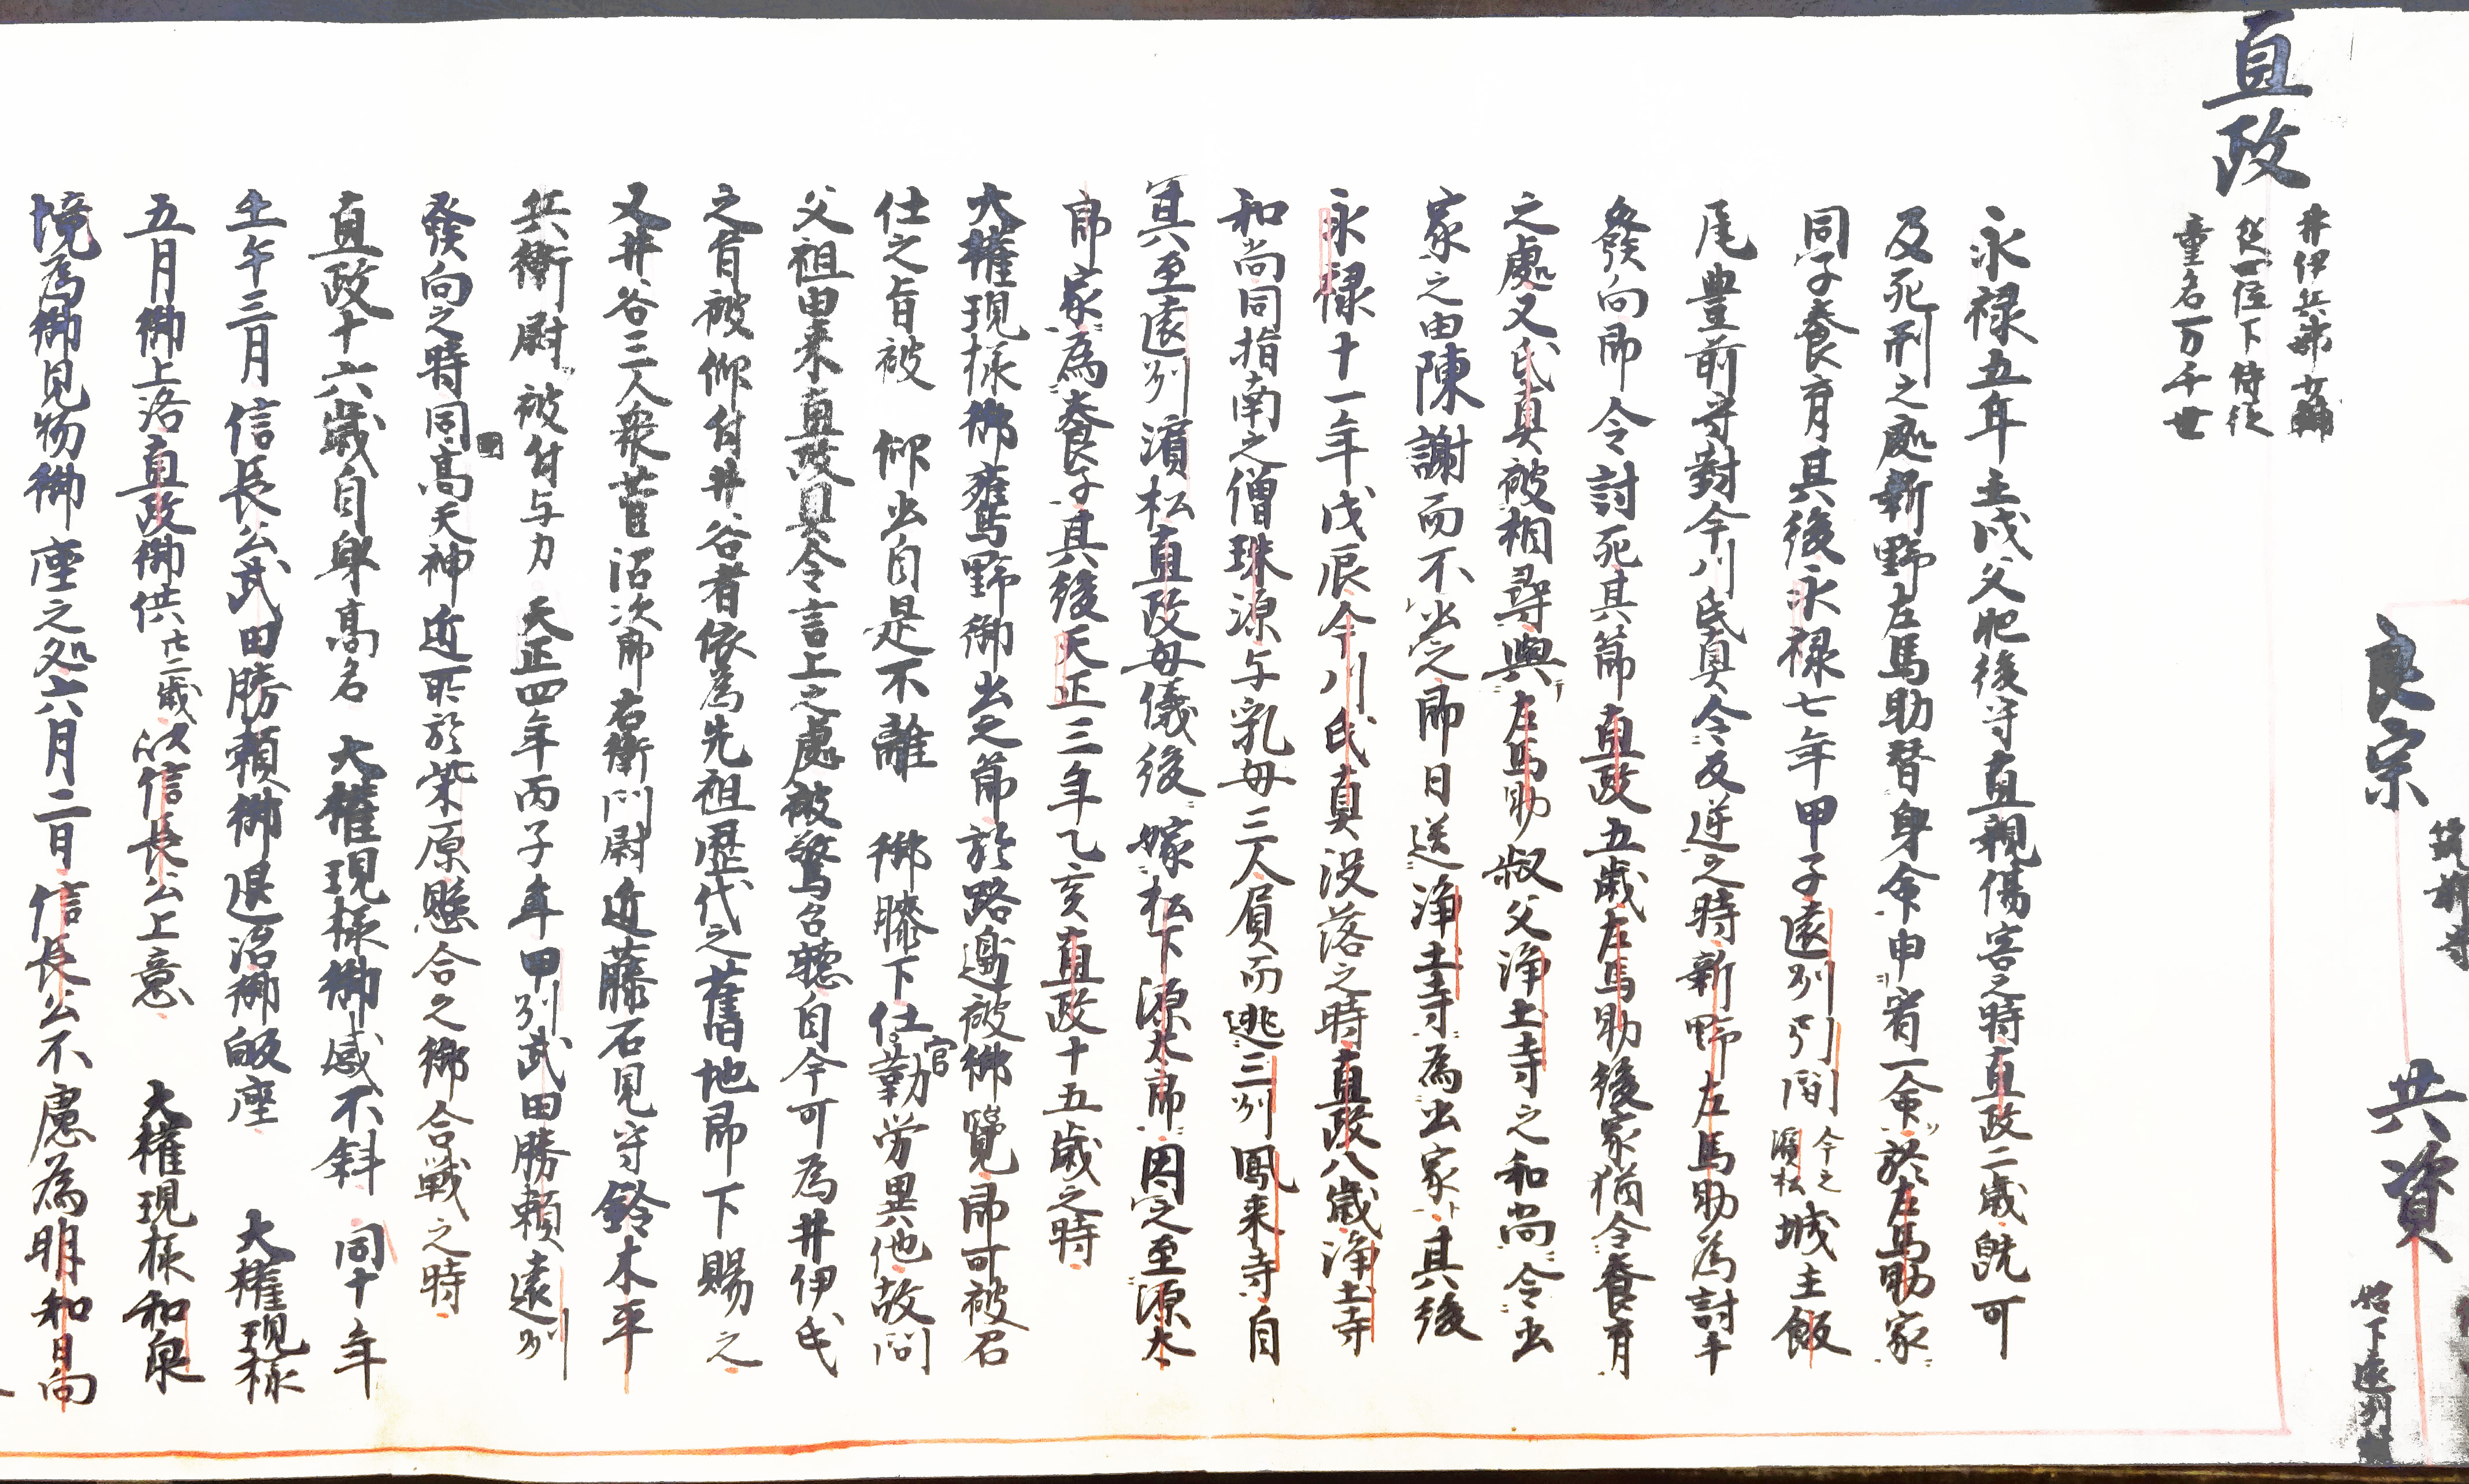 良宗
筑新守
共資
始下遠列
直政
井伊兵部少輔
従一位下侍従
童名一万千世
永禄五年壬戌父肥後守直親傷害之時直政二歳既可
及死刑之處新野左馬助替身命申宥一命於左馬助家
同子養育其後永禄七年甲子遠列引間今之濱松城主飯
尾豊前守對今川氏真令反逆之時新野左馬助為討手
發向即令討死其節直政五歳左馬助後家猶令養育
之處又氏真被相尋與左馬助叔父浄土寺之和尚令出
家之由陳謝而不出之即日送浄土寺為出家其後
永禄十一年戊辰今川氏真没落之時直政八歳浄土寺
和尚同指南之僧珠源与乳母三人屓而逃三列鳳来寺自
其至遠列濱松直政母儀後嫁松下源太郎因之至源太
郎家為養子其後天正三年乙亥直政十五歳之時
大權現様御鷹野御出之節於路邊被御覽即可被召
仕之旨被 仰出自是不離 御膝下仕官勤労異他故問
父祖由来直政具令言上之處被驚台聽自今可為井伊氏
之旨被仰付井谷者依為先祖歴代之舊地即下賜之
又井谷三人衆菅沼次郎右衛門尉近藤石見守鈴木平
兵衛尉被付与力 天正四年丙子年甲列武田勝頼遠列
發向之時同高天神近所於柴原懸合之御合戦之時
直政十六歳自身高名 大權現様御感不斜 同十年
壬午三月信長公武田勝頼御退治御皈座 大權現様
五月御上洛直政御供廿二歳以信長公上意 大權現様和泉
境為御見物御座之処六月二日信長公不慮為明和日向